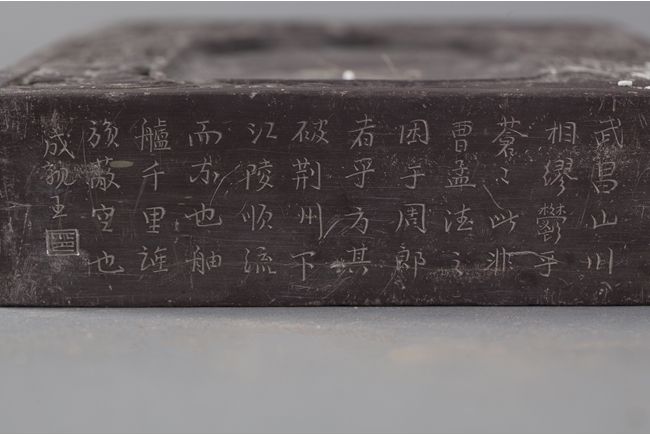 武昌山川
相繆鬱乎
蒼〻此非
曹孟德之
困于周郎
者乎方其
破荆州下
江陵順流
而东也舳
艫千里旌
旗蔽空也
成親王